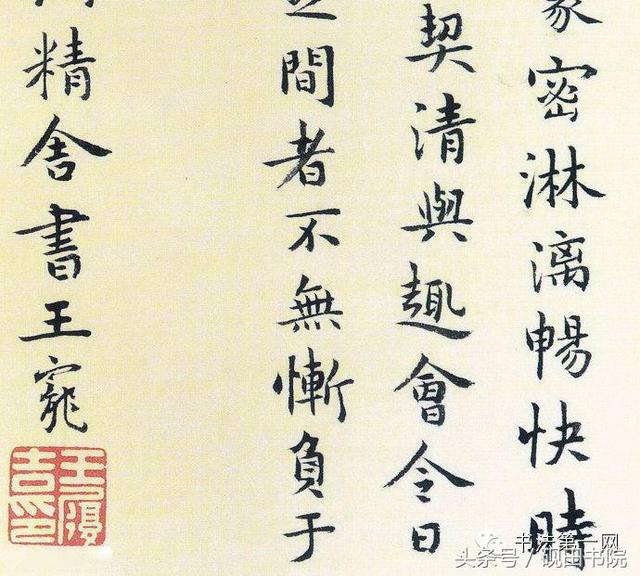 密淋漓暢快時
契清與趣會令日
間者不無慚負于
精舍書王寵
王履吉印
书法第一网
头条号/砚田书院